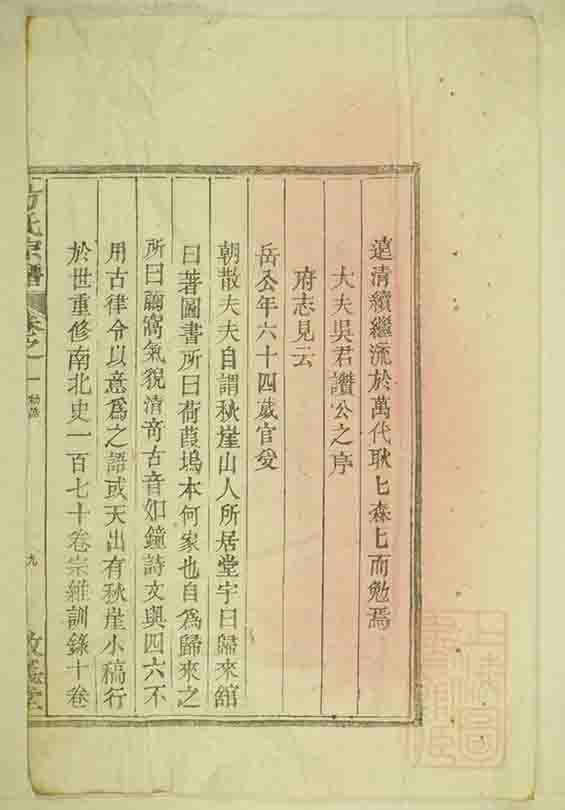 遠清續繼流於萬代耿匕森匕而勉焉
大夫吳君讚公之序
府志見云
岳公年六十四歲官受
朝散夫夫自謂秋崖山人所居堂宇曰歸來舘
曰著圖書所曰荷葭塢本何家也自爲歸來之
所曰繭窩氣貎清奇古音如鐘詩文與四六不
用古律令以意爲之語或天出有秋崖小稿行
於世重修南北史一百七十卷宗維訓錄十卷
方氏宗譜
卷之一
九